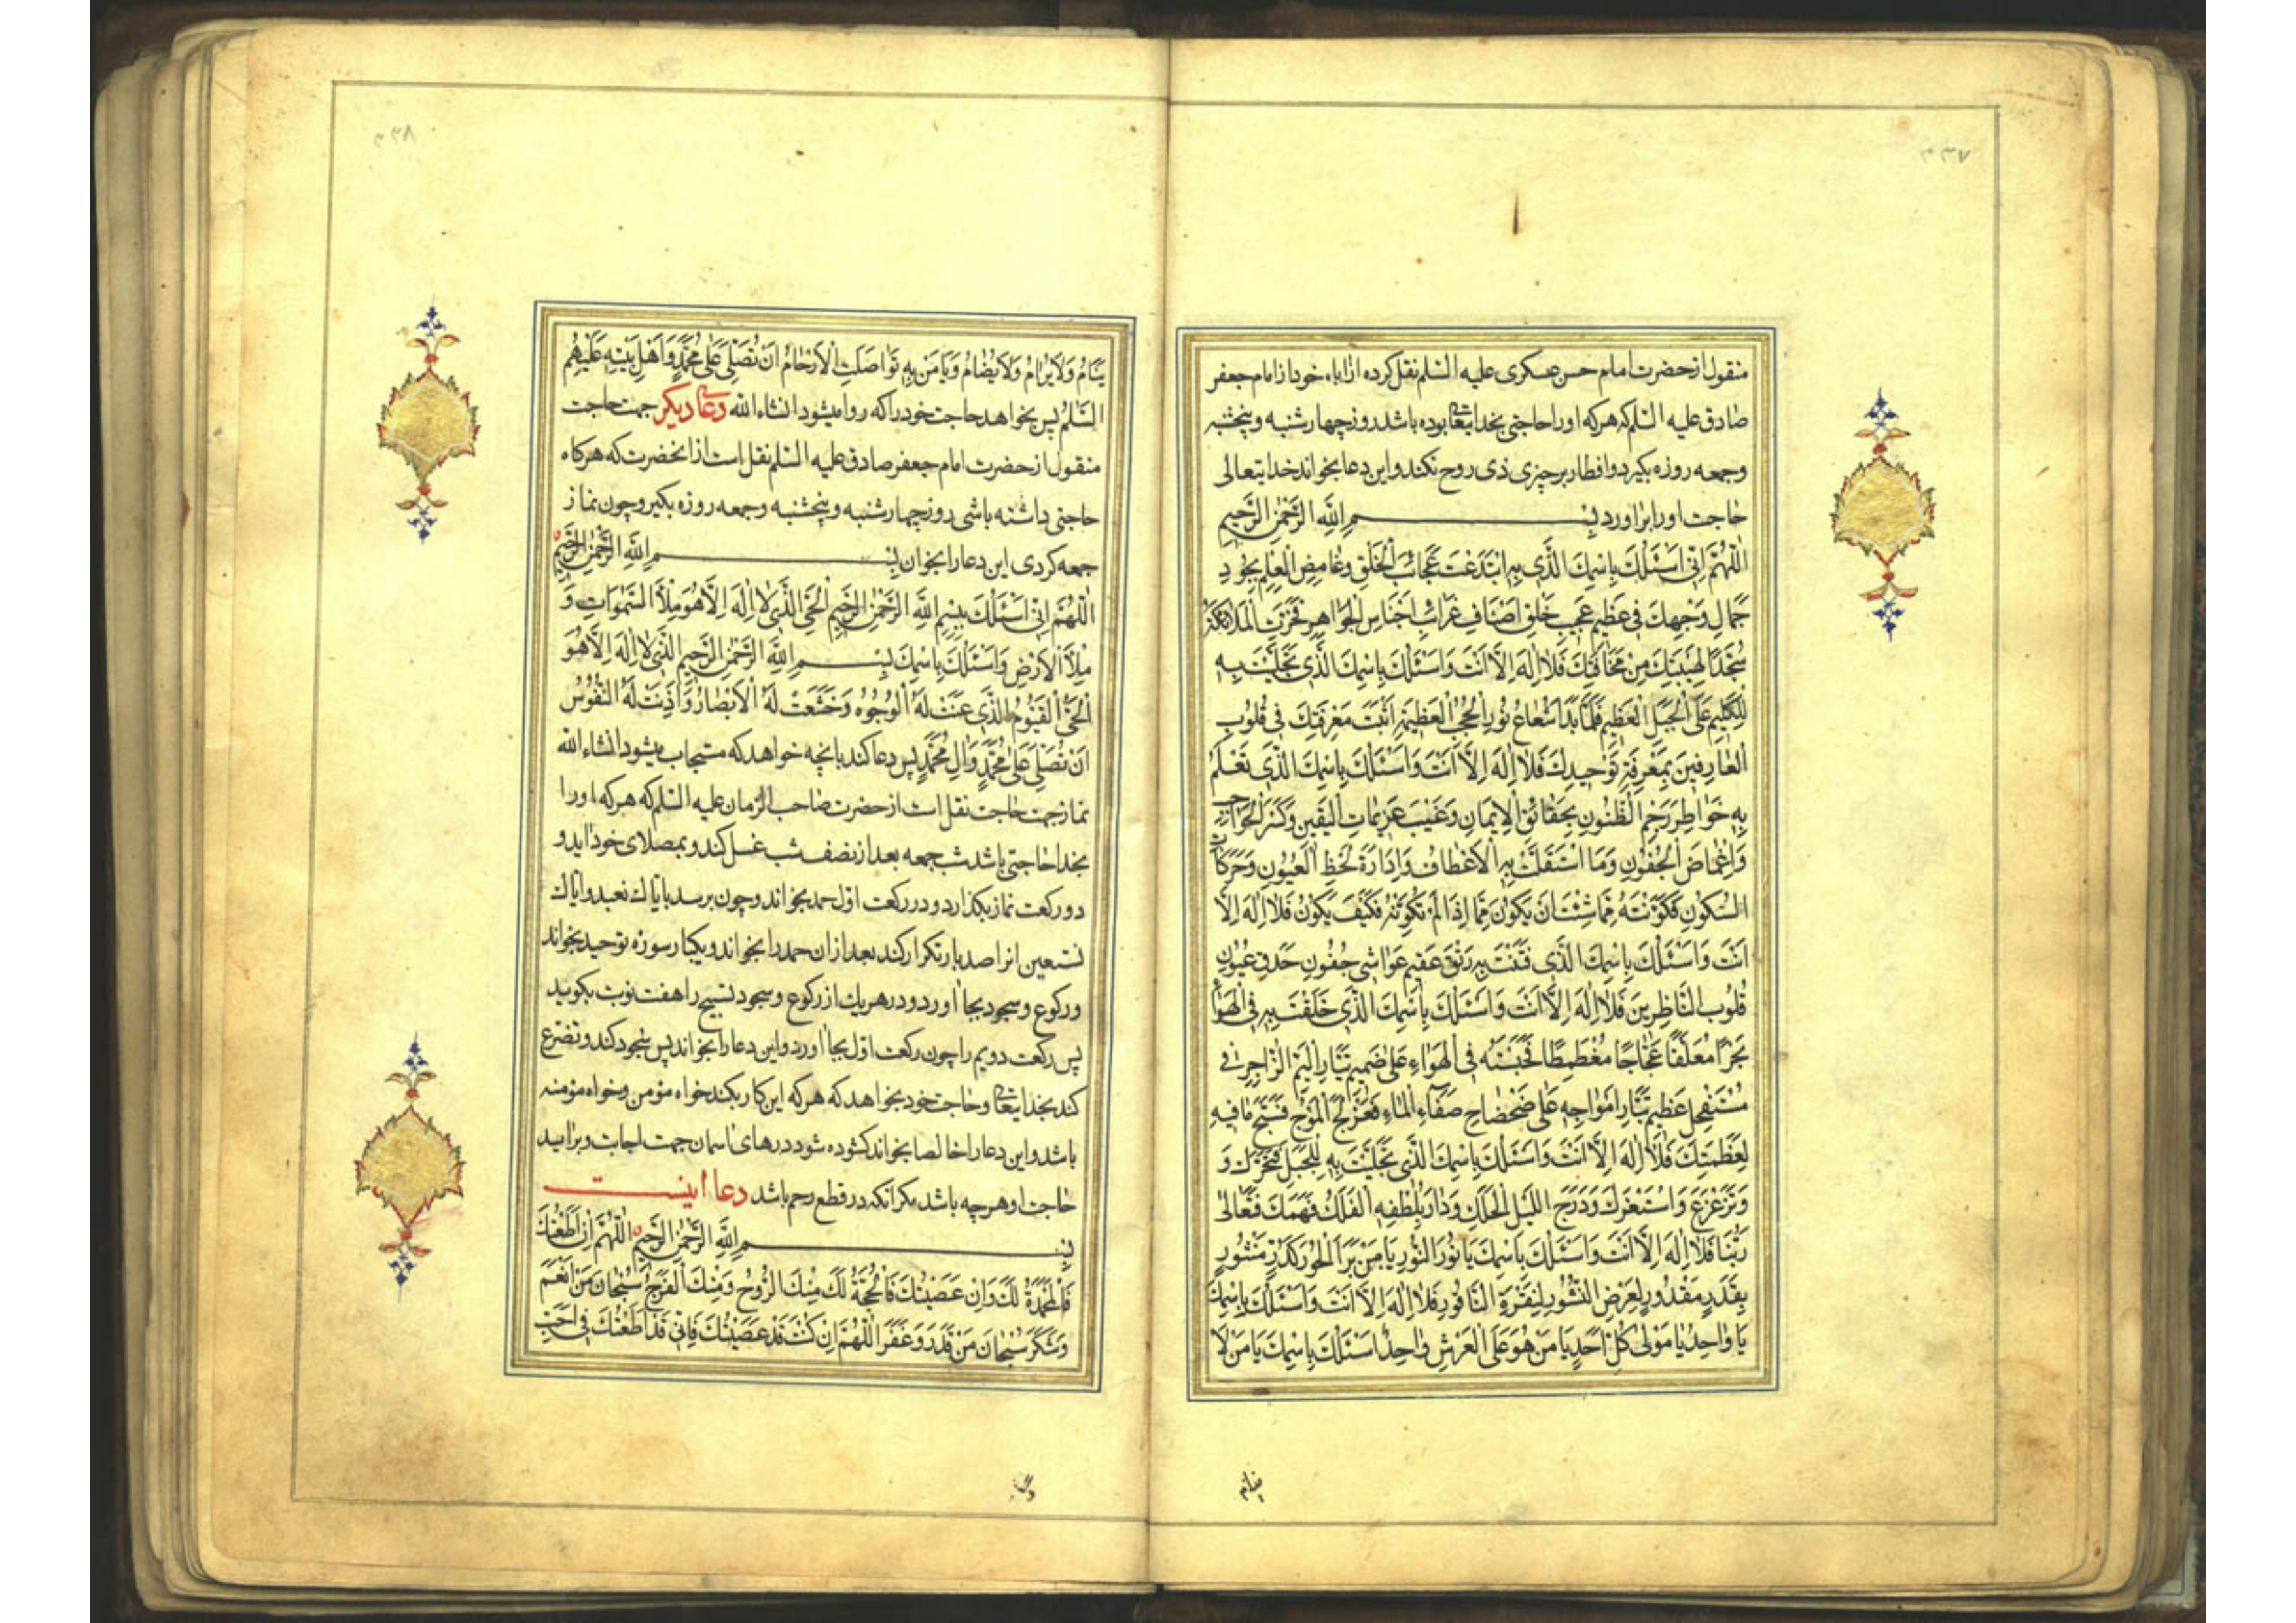 ۳۳۷
منقول از حضرت امام حسن عسکری علیه السلم نقل کرده از اباء خود از امام جعفر
صادق علیه السلم که هرکه او را حاجتی بخدایتعالی بوده باشد روز چهارشنبه و پنجشنبه
و جمعه روزه بگیرد و افطار بر چیزی ذی روح نکند و این دعا بخواند خدایتعالی
حاجت او را براورد بِسْمِ اللّٰهِ الرَّحْمٰنِ الرَّحِیْمِ
اَللّٰهُمَّ اِنّی اَسْئَلُكَ بِاسْمِكَ الَّذی بِهِ ابْتَدَعْتَ عَجَائِبَ الْخَلْقِ وَغَامِضِ الْعِلْمِ بِجُودِ
جَمَالِ وَجْهِكَ فی عَظیمِ عَجیبِ خَلْقِ اَصْنَافِ غَرَائِبِ اَجْنَاسِ الْجَوَاهِرِ فَخَرَّتِ الْمَلائِكَةُ
سُجَّدًا لِهَیْبَتِكَ مِنْ مَخَافَتِكَ فَلا اِلٰهَ اِلَّا اَنْتَ وَاَسْئَلُكَ بِاسْمِكَ الَّذی تَجَلَّیْتَ بِهِ
لِلْكَلیمِ عَلَی الْجَبَلِ الْعَظیمِ فَلَمَّا بَدَا شُعَاعُ نُورِ الْحُجُبِ الْعَظیمَةِ اَثْبَتَّ مَعْرِفَتَكَ فی قُلُوبِ
الْعَارِفینَ بِمَعْرِفَةِ تَوْحیدِكَ فَلا اِلٰهَ اِلَّا اَنْتَ وَاَسْئَلُكَ بِاسْمِكَ الَّذی تَعْلَمُ
بِهِ خَوَاطِرَ رَجْمِ الظُّنُونِ بِحَقَائِقِ الْایمَانِ وَغَیْبَ عَزیمَاتِ الْیَقینِ وَكَسْرَ الْحَوَاجِبِ
وَاِغْمَاضَ الْجُفُونِ وَمَا اسْتَقَلَّتْ بِهِ الْاَعْطَافُ وَاِدَارَةَ لَحْظِ الْعُیُونِ وَحَرَكَاتِ
السُّكُونِ فَكَوَّنْتَهُ مِمَّا شِئْتَ اَنْ یَكُونَ مِمَّا اِذَا لَمْ تُكَوِّنْهُ فَكَیْفَ یَكُونُ فَلا اِلٰهَ اِلَّا
اَنْتَ وَاَسْئَلُكَ بِاسْمِكَ الَّذی فَتَقْتَ بِهِ رَتْقَ عَقیمِ غَوَاشی جُفُونِ حَدَقِ عُیُونِ
قُلُوبِ النَّاظِرینَ فَلا اِلٰهَ اِلَّا اَنْتَ وَاَسْئَلُكَ بِاسْمِكَ الَّذی خَلَقْتَ بِهِ فِی الْهَوَاءِ
بَحْرًا مُعَلَّقًا عَجَّاجًا مُغَطْمِطًا فَحَبَسْتَهُ فِی الْهَوَاءِ عَلٰی صَمیمِ تَیَّارِ الْیَمِّ الزَّاخِرِ فی
مُسْتَفْحِلِ عَظیمِ تَیَّارِ اَمْوَاجِهِ عَلٰی ضَحْضَاحِ صَفَاءِ الْمَاءِ فَعَزْلَجَ الْمَوْجُ فَسَبَّحَ مَا فیهِ
لِعَظَمَتِكَ فَلا اِلٰهَ اِلَّا اَنْتَ وَاَسْئَلُكَ بِاسْمِكَ الَّذی تَجَلَّیْتَ بِهِ لِلْجَبَلِ فَتَحَرَّكَ وَ
وَتَزَعْزَعَ وَاسْتَعْزَكَ وَدَرَجَ اللَّیْلُ الْحَلِكُ وَدَارَ بِلُطْفِهِ الْفَلَكُ فَهَمَكَ فَتَعَالٰی
رَبُّنَا فَلا اِلٰهَ اِلَّا اَنْتَ وَاَسْئَلُكَ بِاسْمِكَ یَا نُورَ النُّورِ یَا مَنْ بَرَاَ الْحُورَ كَدُرٍّ مَنْثُورٍ
بِقَدَرٍ مَقْدُورٍ لِعَرْضِ النُّشُورِ لِنَقْرَةِ النَّاقُورِ فَلا اِلٰهَ اِلَّا اَنْتَ وَاَسْئَلُكَ بِاسْمِكَ
یَا وَاحِدُ یَا مَوْلٰی كُلِّ اَحَدٍ یَا مَنْ هُوَ عَلَی الْعَرْشِ وَاحِدٌ اَسْئَلُكَ بِاسْمِكَ یَا مَنْ لا
ینام
۳۳۸
یَنَامُ وَلا یُرَامُ وَلا یُضَامُ وَیَا مَنْ بِهِ تَوَاصَلَتِ الْاَرْحَامُ اَنْ تُصَلِّیَ عَلٰی مُحَمَّدٍ وَاَهْلِ بَیْتِهِ عَلَیْهِمُ
السَّلٰمُ پس بخواهد حاجت خود را که روا میشود انشاءالله دعای دیگر جهت حاجت
منقول از حضرت امام جعفر صادق علیه السلم نقل است از انحضرت که هرکاه
حاجتی داشته باشی روز چهارشنبه و پنجشنبه و جمعه روزه بگیر و چون نماز
جمعه کردی این دعا را بخوان بِسْمِ اللّٰهِ الرَّحْمٰنِ الرَّحِیْمِ
اَللّٰهُمَّ اِنّی اَسْئَلُكَ بِبِسْمِ اللّٰهِ الرَّحْمٰنِ الرَّحیمِ الْحَیِّ الَّذی لا اِلٰهَ اِلَّا هُوَ مِلْاَ السَّمٰوَاتِ وَ
مِلْاَ الْاَرْضِ وَاَسْئَلُكَ بِاسْمِكَ بِسْمِ اللّٰهِ الرَّحْمٰنِ الرَّحیمِ الَّذی لا اِلٰهَ اِلَّا هُوَ
الْحَیُّ الْقَیُّومُ الَّذی عَنَتْ لَهُ الْوُجُوهُ وَخَشَعَتْ لَهُ الْاَبْصَارُ وَاَذِنَتْ لَهُ النُّفُوسُ
اَنْ تُصَلِّیَ عَلٰی مُحَمَّدٍ وَاٰلِ مُحَمَّدٍ پس دعا کند بانچه خواهد که مستجاب میشود انشاءالله
نماز جهت حاجت نقل است از حضرت صاحب الزمان علیه السلم که هرکه او را
بخدا حاجتی باشد شب جمعه بعد از نصف شب غسل کند و بمصلای خود اید و
دو رکعت نماز بکذارد و در رکعت اول حمد بخواند و چون برسد بایاك نعبد و ایاك
نستعین انرا صد بار تکرار کند بعد از ان حمد را بخواند و یکبار سوره توحید بخواند
و رکوع و سجود بجا اورد و در هر یك از رکوع و سجود تسبیح را هفت نوبت بکوید
پس رکعت دویم را چون رکعت اول بجا اورد و این دعا را بخواند پس سجود کند و تضرع
کند بخدایتعالی و حاجت خود بخواهد که هرکه این کار بکند خواه مؤمن و خواه مؤمنه
باشد و این دعا را خالصا بخواند کشوده شود درهای اسمان جهت اجابت و براید
حاجت او هرچه باشد مکر انکه در قطع رحم باشد دعا اینست
بِسْمِ اللّٰهِ الرَّحْمٰنِ الرَّحیمِ اَللّٰهُمَّ اِنْ اَطَعْتُكَ
فَالْمَحْمَدَةُ لَكَ وَاِنْ عَصَیْتُكَ فَالْحُجَّةُ لَكَ مِنْكَ الرَّوْحُ وَمِنْكَ الْفَرَجُ سُبْحَانَ مَنْ اَنْعَمَ
وَشَكَرَ سُبْحَانَ مَنْ قَدَرَ وَغَفَرَ اَللّٰهُمَّ اِنْ كُنْتُ قَدْ عَصَیْتُكَ فَاِنّی قَدْ اَطَعْتُكَ فی اَحَبِّ